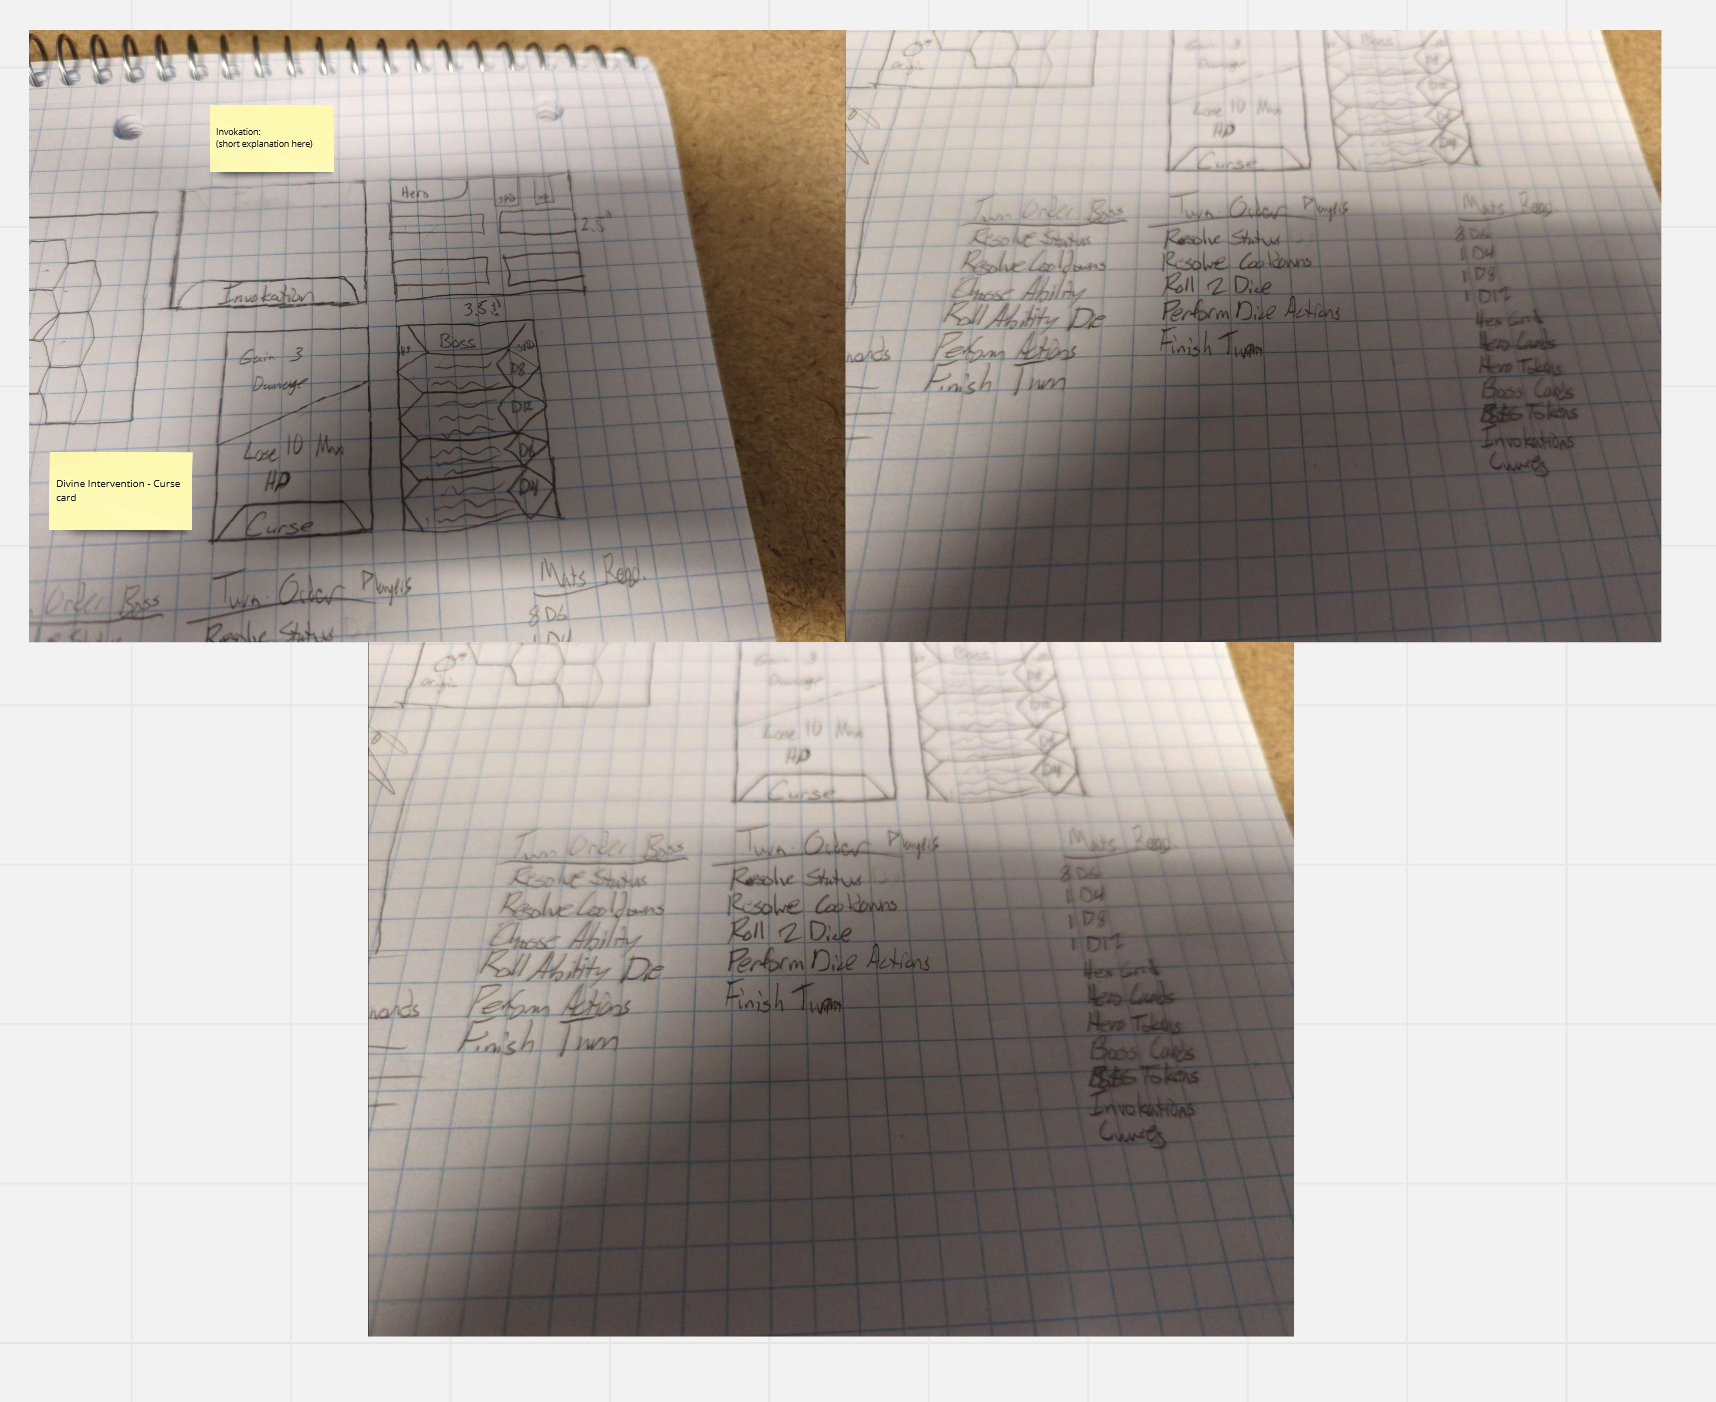 Invokation:
(short explanation here)
Invokation
Hero
SPD
HP
2.5"
3.5"
Gain 3
Damage
Lose 10 Max
HP
Curse
HP
Boss
SPD
D8
D12
D6
D4
Divine Intervention - Curse
card
Order Boss
Turn Order Players
Resolve Status
Mats Reqd.
8 D6
1 D4
origin
Gain 3
Damage
Lose 10 Max
HP
Curse
Boss
D8
D12
D6
D4
Turn Order Boss
Resolve Status
Resolve Cooldowns
Choose Ability
Roll Ability Die
Perform Actions
Finish Turn
Turn Order Players
Resolve Status
Resolve Cooldowns
Roll 2 Dice
Perform Dice Actions
Finish Turn
Mats Reqd.
8 D6
1 D4
1 D8
1 D12
Hex Grid
Hero Cards
Hero Tokens
Boss Cards
Boss Tokens
Invokations
Curses
origin
Gain 3
Damage
Lose 10 Max
HP
Curse
Boss
D8
D12
D6
D4
Turn Order Boss
Resolve Status
Resolve Cooldowns
Choose Ability
Roll Ability Die
Perform Actions
Finish Turn
Turn Order Players
Resolve Status
Resolve Cooldowns
Roll 2 Dice
Perform Dice Actions
Finish Turn
Mats Reqd.
8 D6
1 D4
1 D8
1 D12
Hex Grid
Hero Cards
Hero Tokens
Boss Cards
Boss Tokens
Invokations
Curses